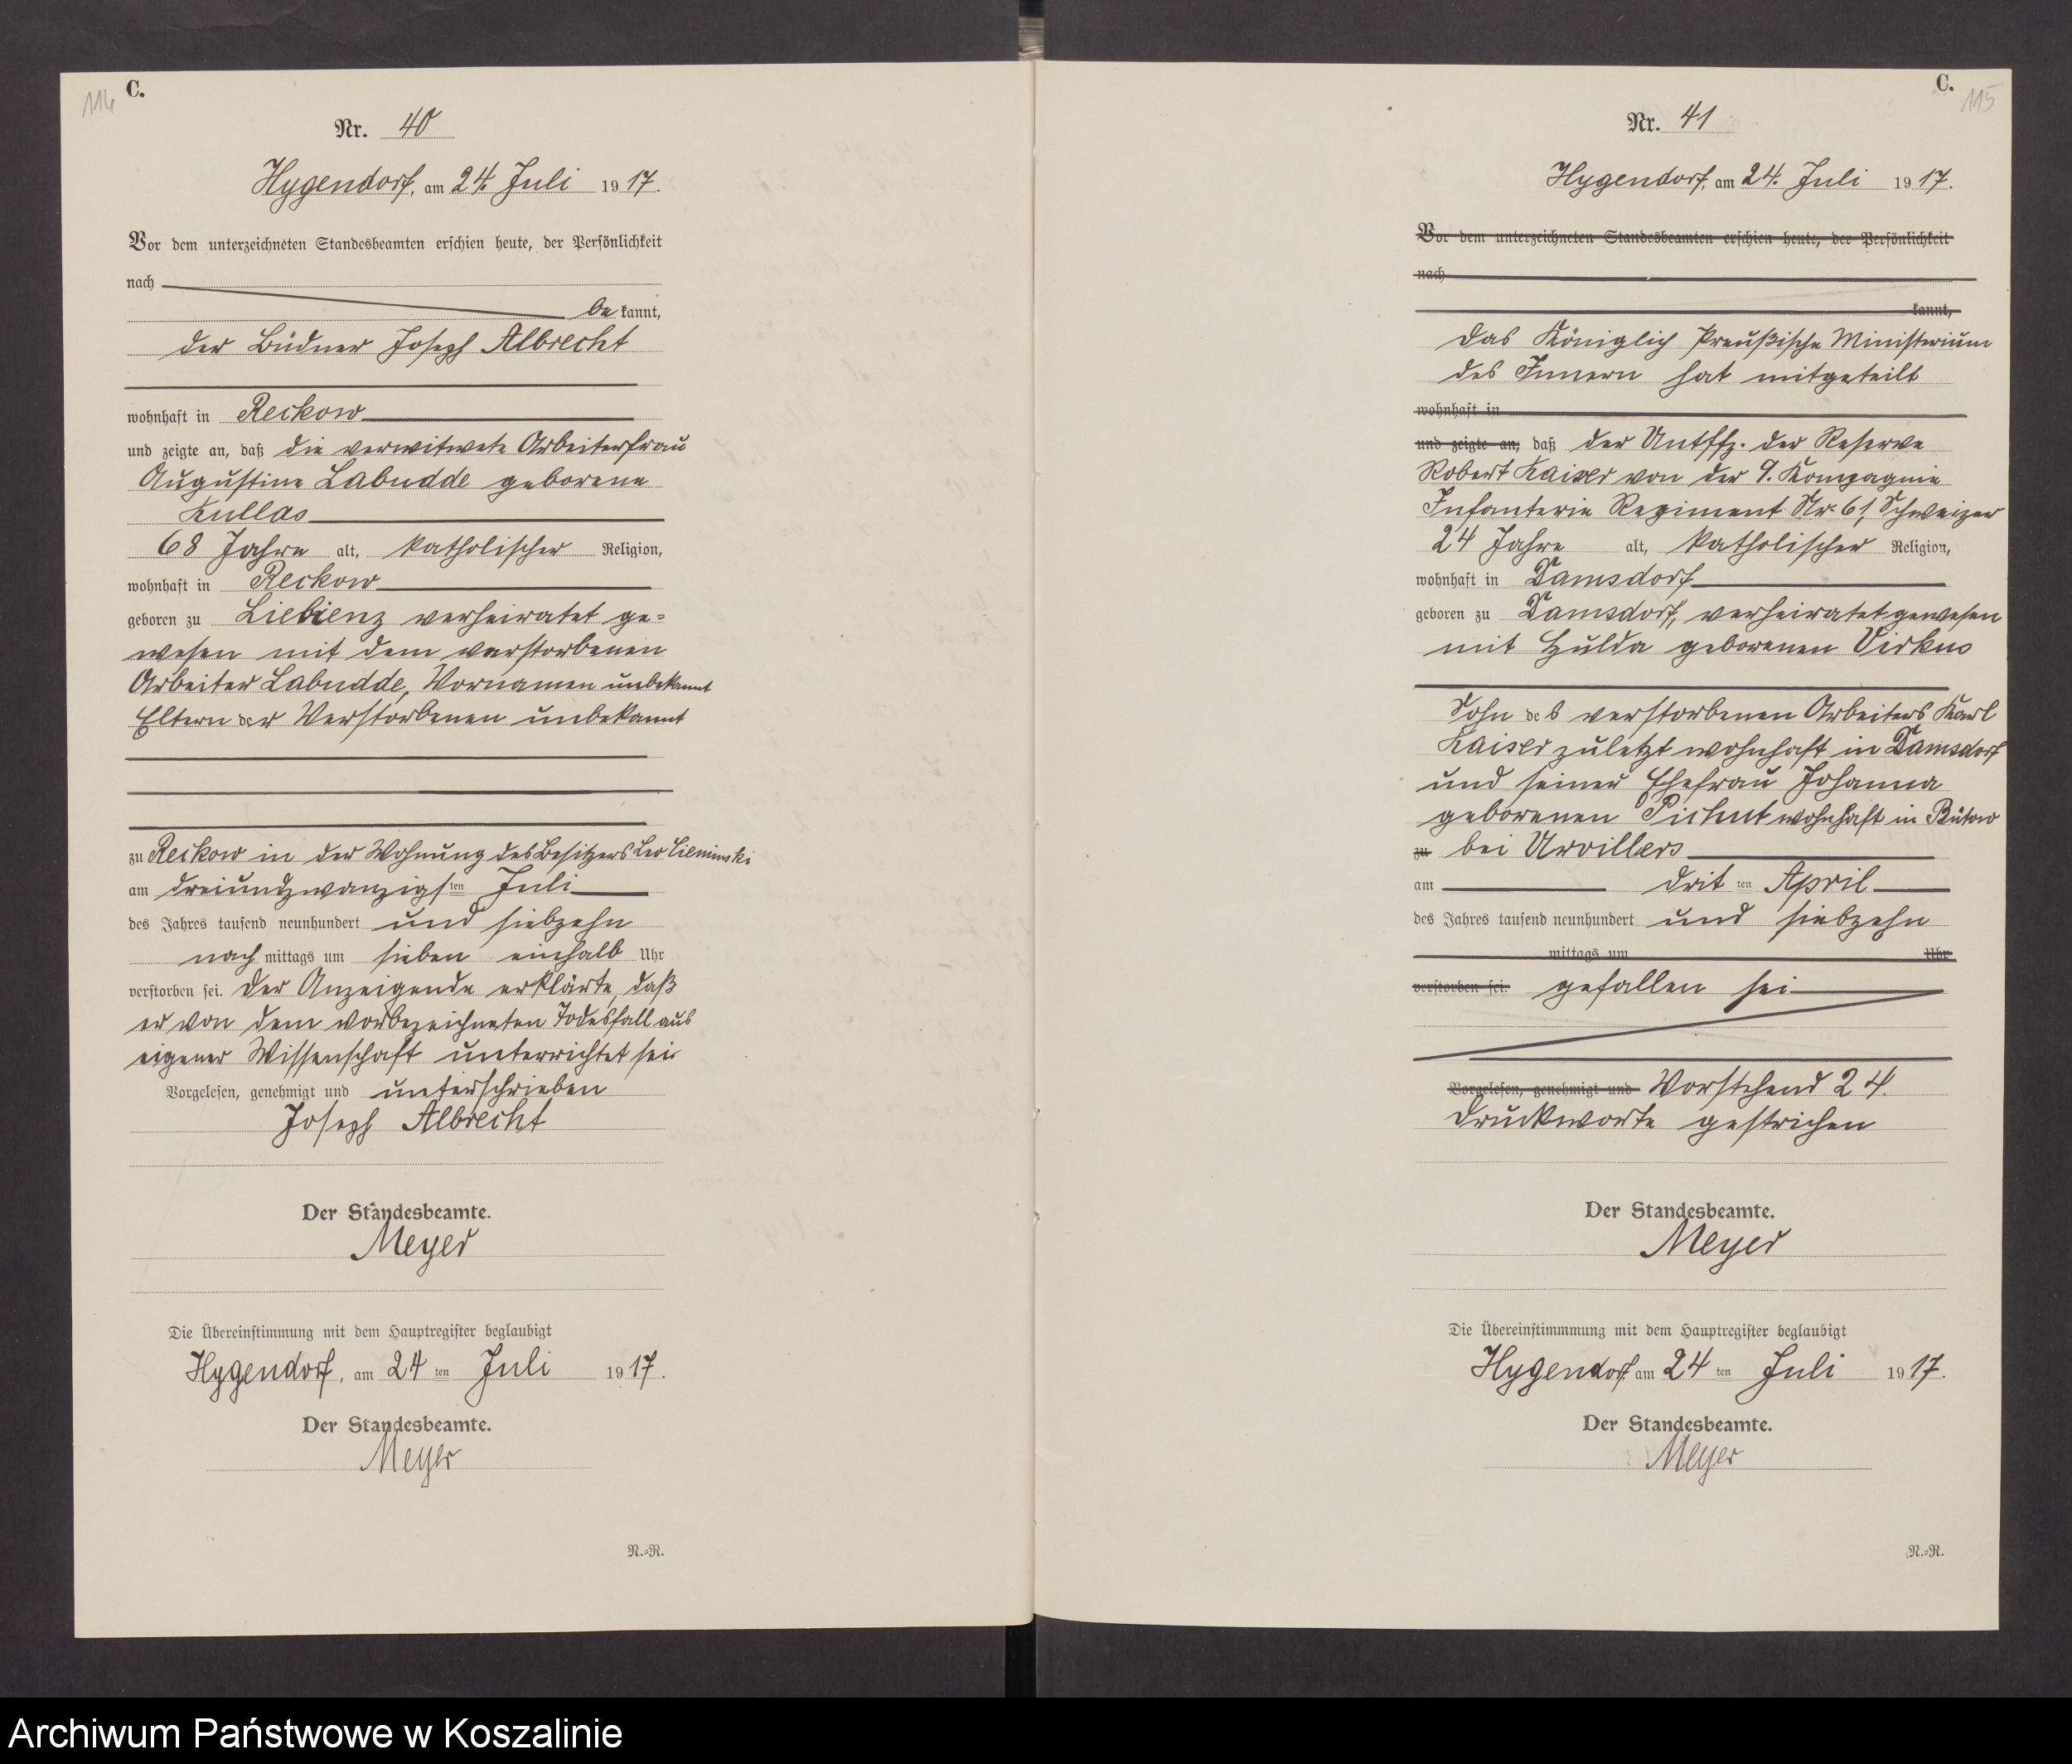 114
C.
Nr. 40
Hygendorf, am 24. Juli 1917.
Vor dem unterzeichneten Standesbeamten erschien heute, der Persönlichkeit
nach
be kannt,
der Büdner Joseph Albrecht
wohnhaft in Reckow
und zeigte an, daß die verwitwete Arbeiterfrau
Augustine Labudde geborene
Kullas
68 Jahre alt, katholischer Religion,
wohnhaft in Reckow
geboren zu Liebienz verheiratet ge=
wesen mit dem verstorbenen
Arbeiter Labudde, Vornamen unbekannt
Eltern der Verstorbenen unbekannt
zu Reckow in der Wohnung des Besitzers Leo Cieminski
am dreiundzwanzigsten Juli
des Jahres tausend neunhundert und siebzehn
nach mittags um sieben einhalb Uhr
verstorben sei. Der Anzeigende erklärte, daß
er von dem vorbezeichneten Todesfall aus
eigener Wissenschaft unterrichtet sei
Vorgelesen, genehmigt und unterschrieben
Joseph Albrecht
Der Standesbeamte.
Meyer
Die Übereinstimmung mit dem Hauptregister beglaubigt
Hygendorf, am 24 ten Juli 1917.
Der Standesbeamte.
Meyer
N.=R.
C.
115
Nr. 41
Hygendorf, am 24. Juli 1917.
Vor dem unterzeichneten Standesbeamten erschien heute, der Persönlichkeit
nach
kannt,
Das Königlich Preußische Ministerium
des Innern hat mitgeteilt
wohnhaft in
und zeigte an, daß der Untffz. der Reserve
Robert Kaiser von der 9. Kompagnie
Infanterie Regiment Nr. 61, Schweizer
24 Jahre alt, katholischer Religion,
wohnhaft in Damsdorf
geboren zu Damsdorf, verheiratet gewesen
mit Hulda geborenen Virkus
Sohn des verstorbenen Arbeiters Karl
Kaiser zuletzt wohnhaft in Damsdorf
und seiner Ehefrau Johanna
geborenen wohnhaft in Bütow
zu bei Urvillers
am drit ten April
des Jahres tausend neunhundert und siebzehn
mittags um Uhr
verstorben sei. gefallen sei
Vorgelesen, genehmigt und Vorstehend 24.
Druckworte gestrichen
Der Standesbeamte.
Meyer
Die Übereinstimmmung mit dem Hauptregister beglaubigt
Hygendorf am 24 ten Juli 1917.
Der Standesbeamte.
Meyer
N.=R.
Archiwum Państwowe w Koszalinie